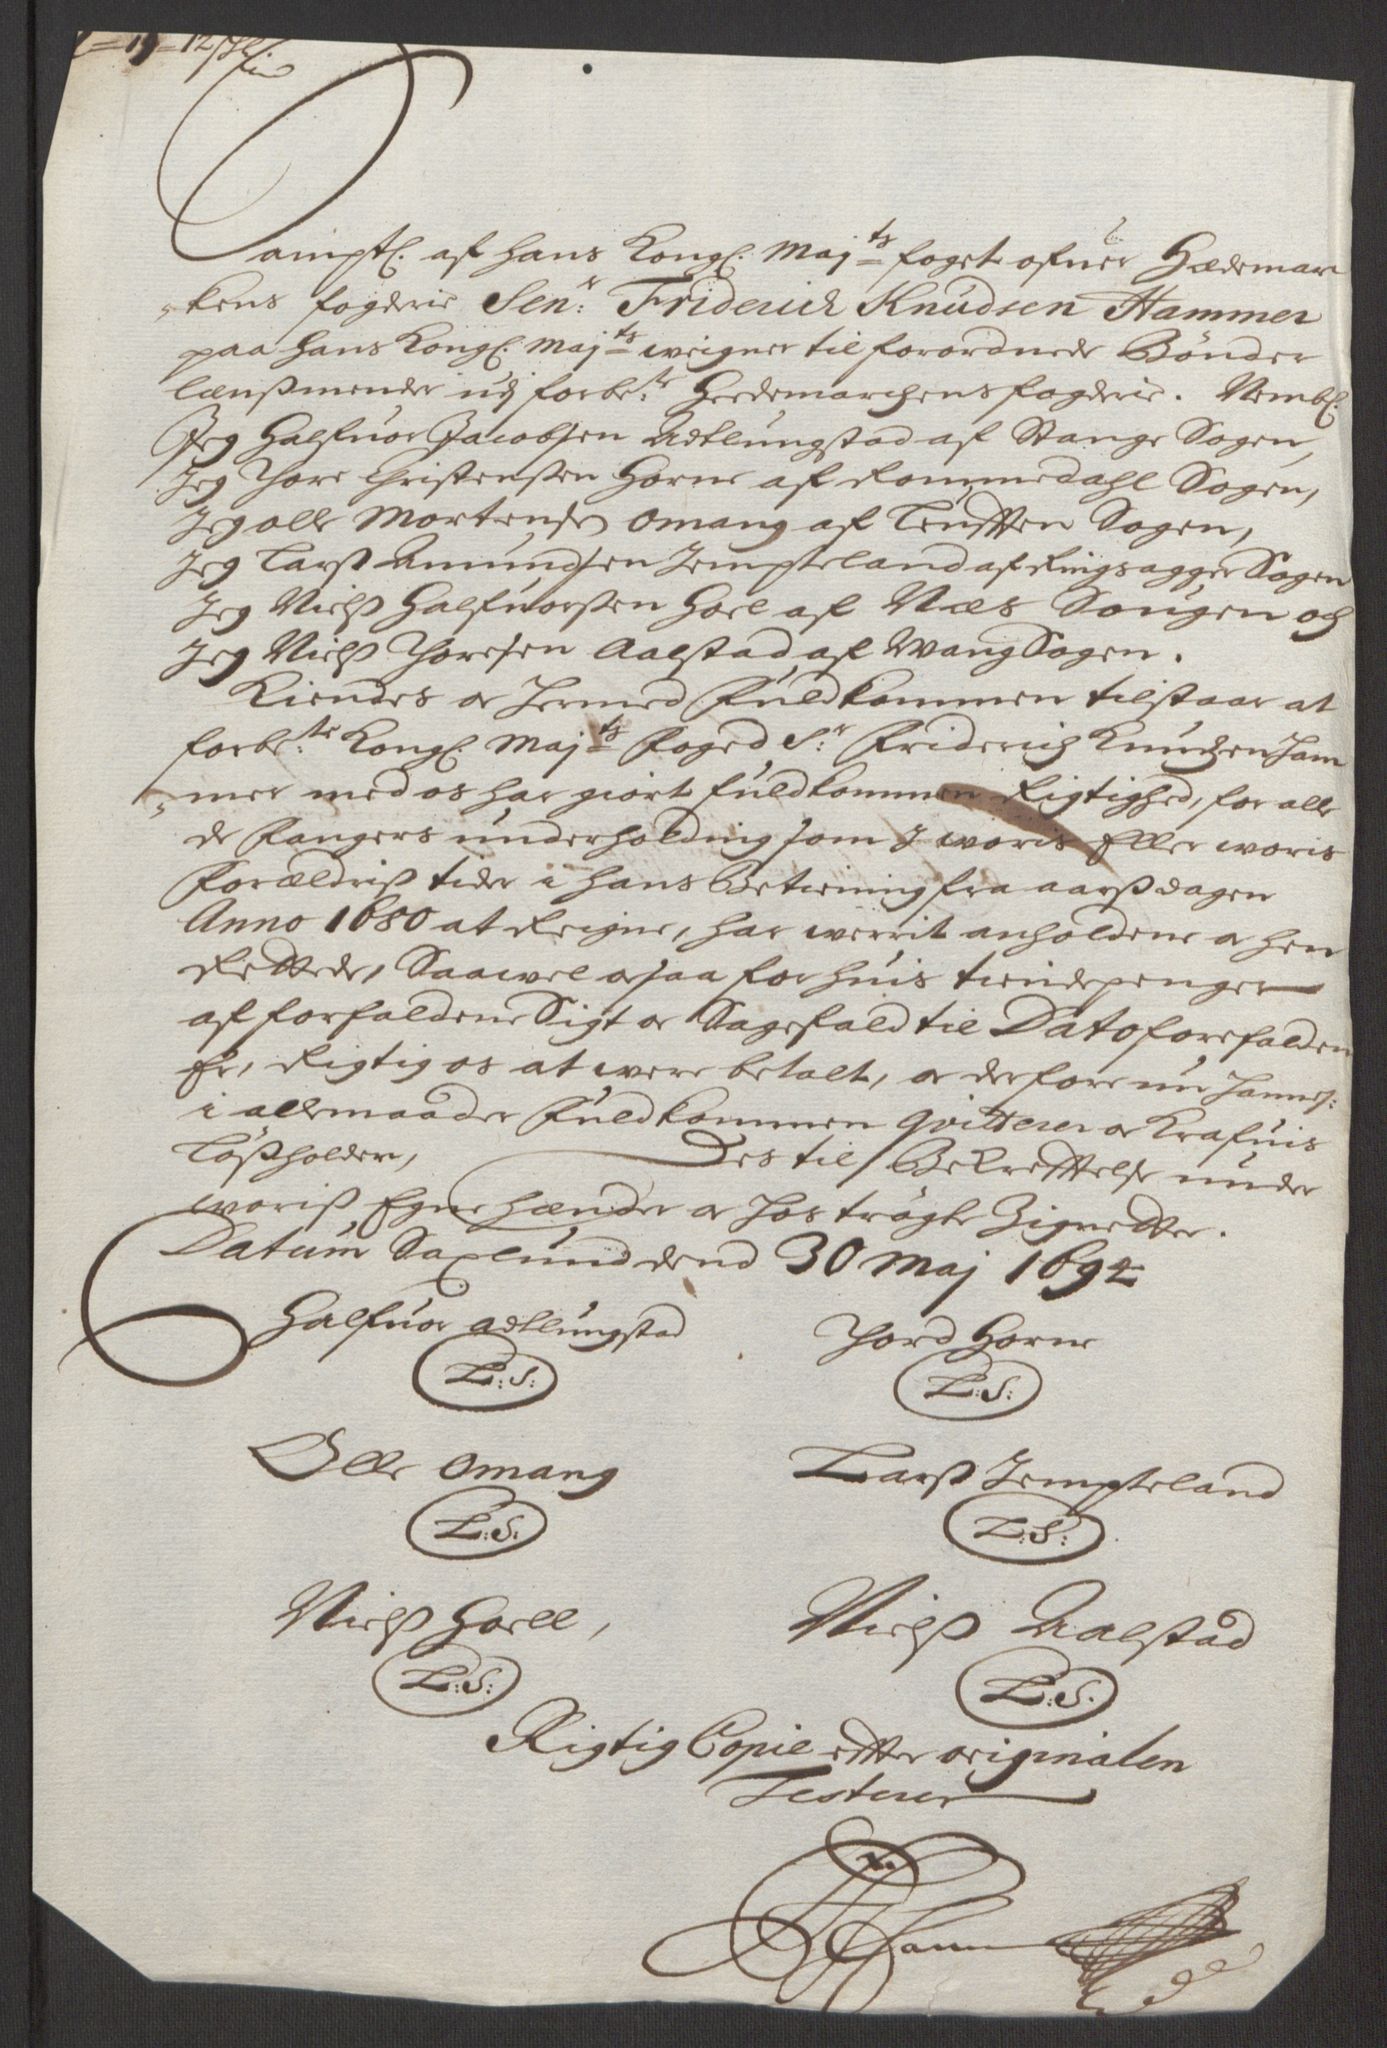 Samptl. af Hans Kongl. Maj.ts foget ofuer Hædemar
-kens fogderie Sen.r Friderich Knudsen Hammer
paa Hans Kongl. Maj.ts weigner til forordnede Bönder
lænßmender udj forbe.te Hedemarchens fogderie. Nembl.
Jeg Halfuor Jacobsen Adtlungstad af Stange Sogen,
Jeg Thore Christensen Horne af Rommedahl Sogen,
Jeg Olle Mortensen Omang af Leutten Sogen,
Jeg Larß Amundsen Jempteland af Ringsagger Sogen
Jeg Nielß Halfuorsen Hoel af Næs Sougen och
Jeg Nielß Thoresen Aalstad af Wang Sogen.
Kiendes og hermed fuldkommen tilstaar at
forbe.te Kongl. Maj.ts foged S.r Friderich Knudsen Ham
-mer med os har giort fuldkommen Rigtighed, for alle
de fangers underholding som J woris eller woris
forældriß tider i hans Betiening fra aarßdagen
Anno 1680 at Reigne, har werrit anholdene og hen
Rettede, Saawel ogsaa for huis tiendepenger
af forfaldene Sigt og Sagefald til Dato forefalden
er, Rigtig os at were betalt, og derfore nu hannes:
i alle maader fuldkommen qvitterer og Krafuis
Lößholder, Des til Bekrefftelse under
woriß Egne hænder og hoströgte Zignetter.
Datum Saxlund dend 30 Maj 1692
Halfuor Adtlungstad Thord Horne
L:S: L:S:
Olle Omang Larß Jempteland
L:S. L:S:
Nielß Hoell, Nielß Aalstad
L:S: L:S.
Rigtig Copie efter originalen
Testerer
Hammer